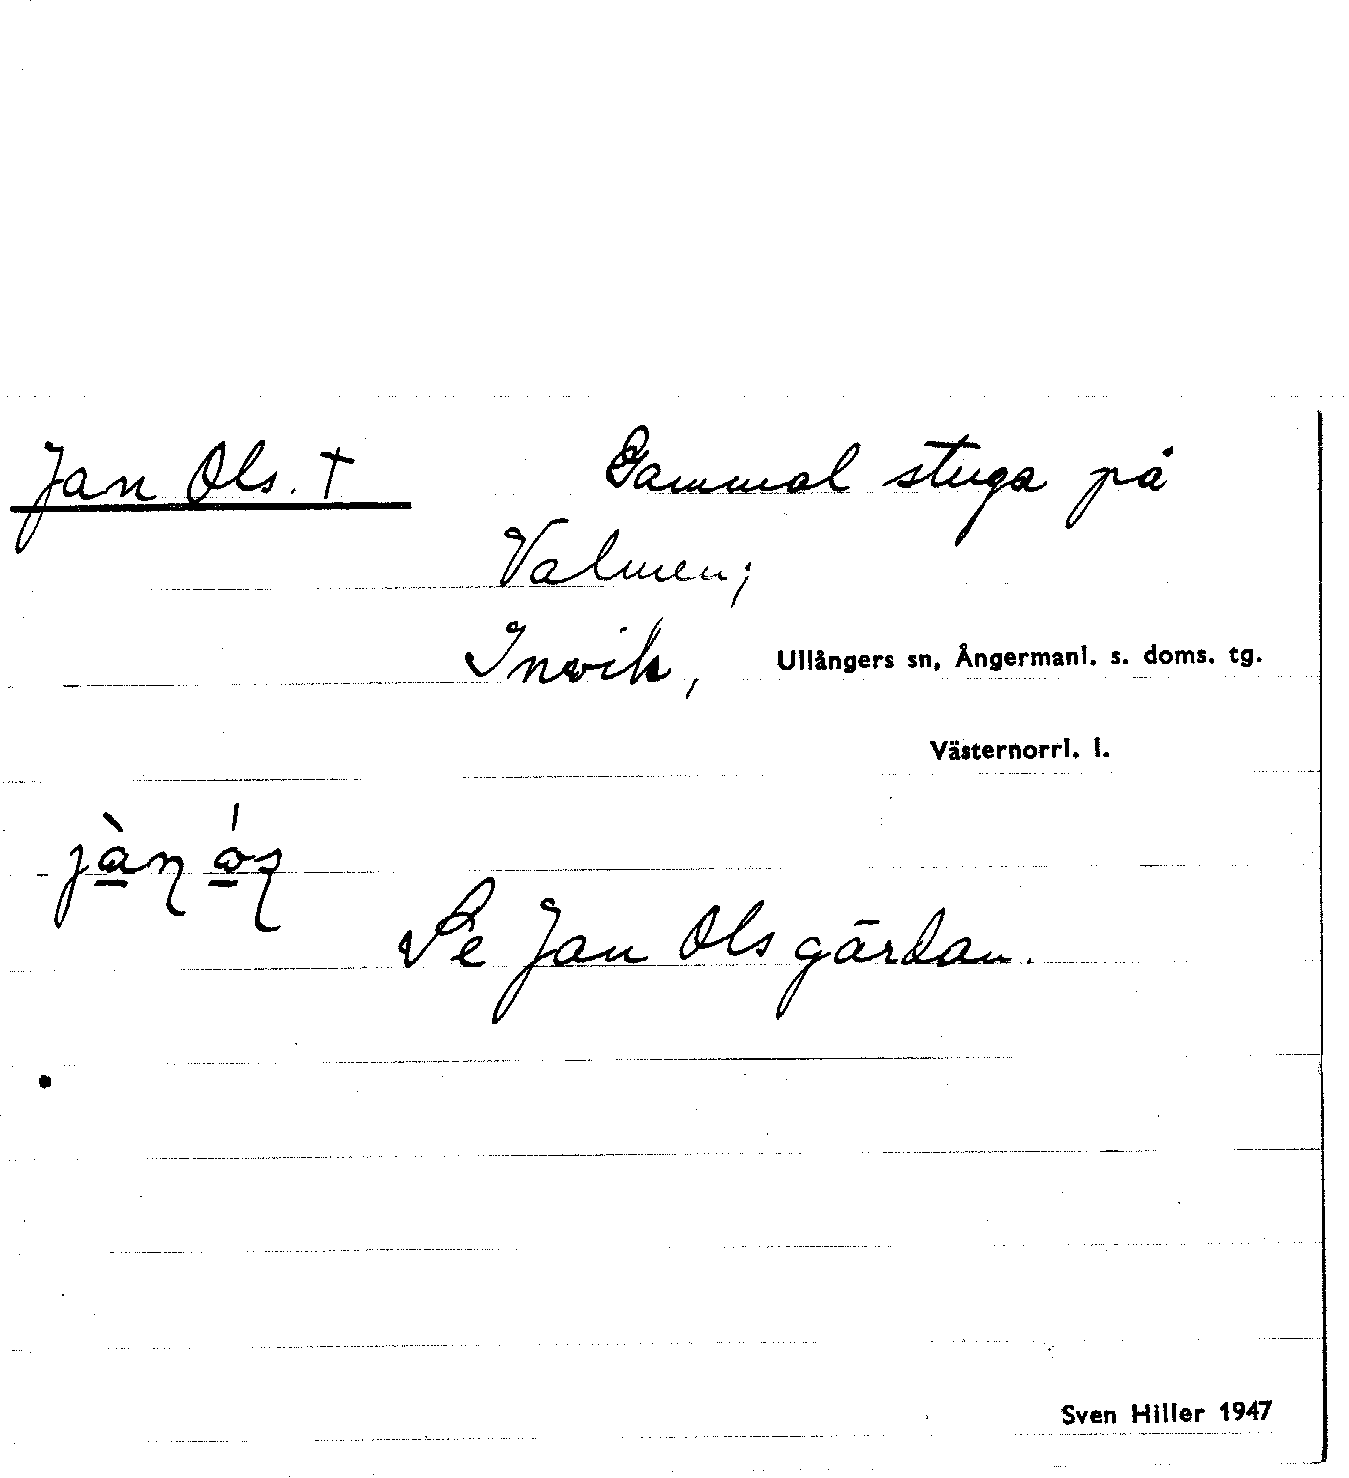 Jan Ols. † Gammal stuga på
Valmen;
Invik, Ullångers sn, Ångermanl. s. doms. tg.
Västernorrl. l.
Se Jan Olsgårdan.
Sven Hiller 1947